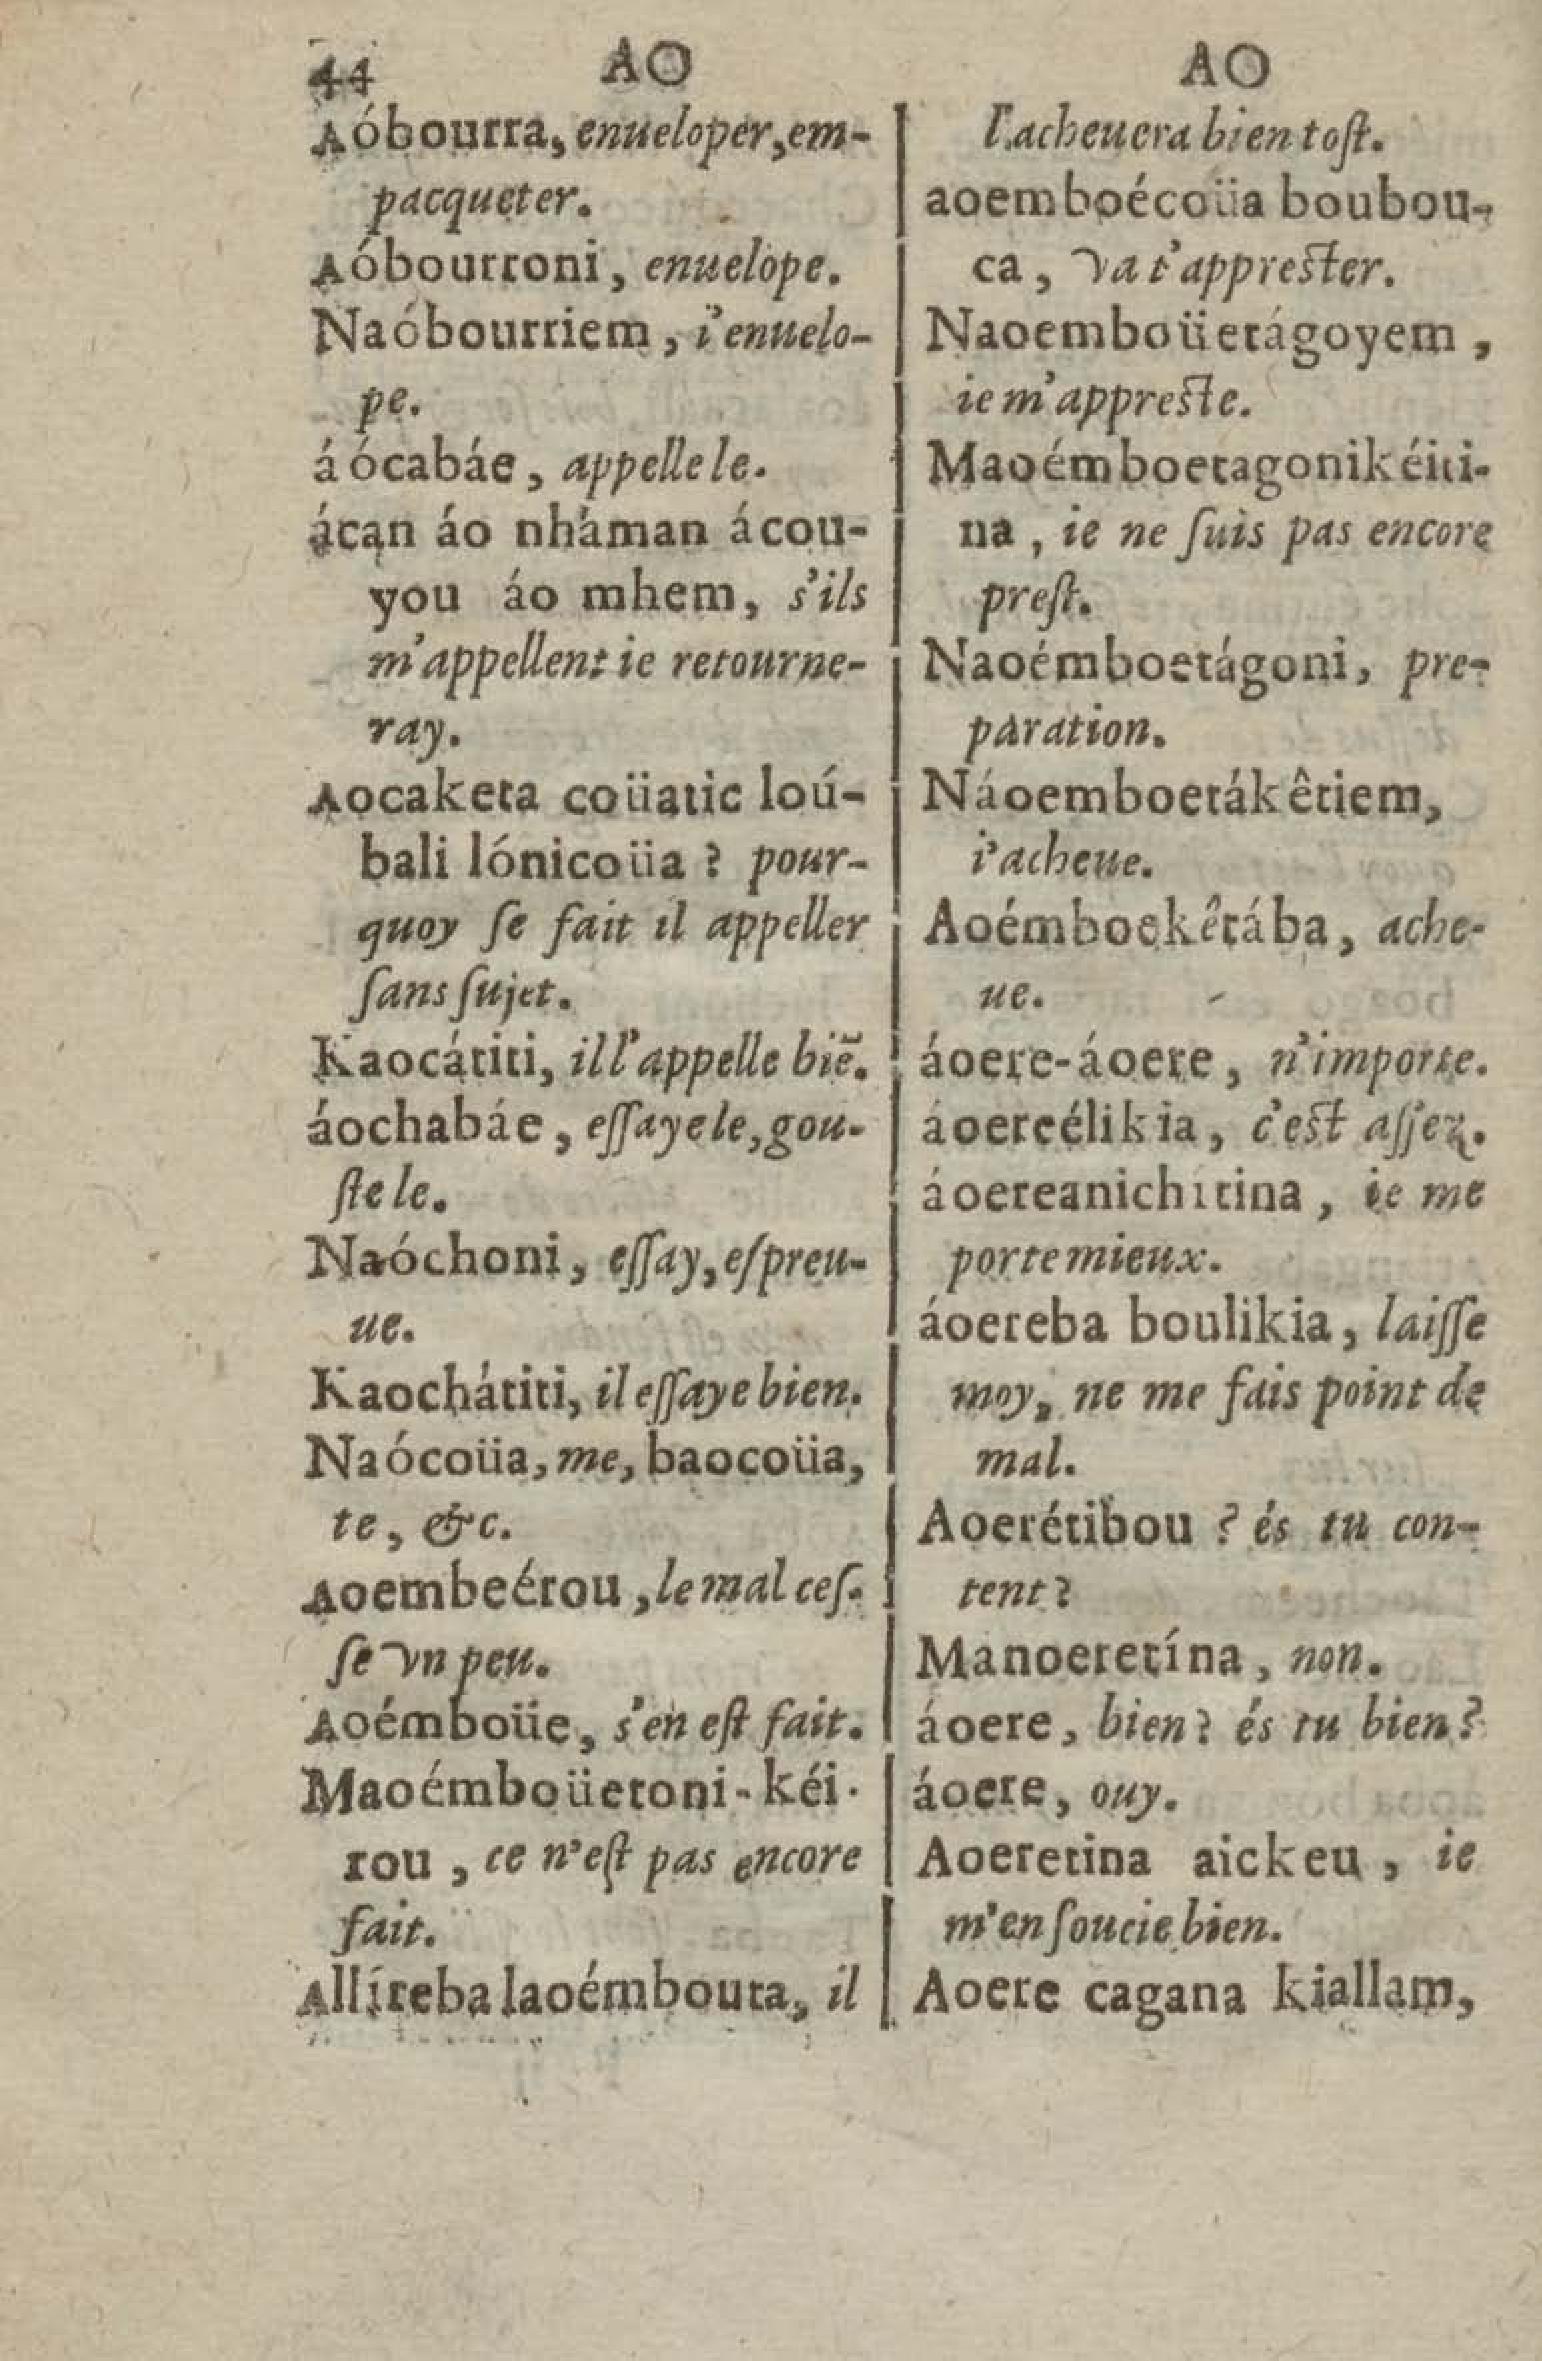 44 AO AO
Aóbourra, enueloper, em-
pacqueter.
Aóbourroni, enuelope.
Naóbourriem, i'enuelo-
pe.
á ócabáe, appelle le.
ácan áo nháman ácou-
you áo mhem, s'ils
m'appellent ie retourne-
ray.
Aocaketa coüatic loú-
bali lónicoüa ? pour-
quoy ſe fait il appeller
ſans ſujet.
Kaocátiti, il l'appelle biē.
áochabáe, eſſaye le, gou-
ſte le.
Naóchoni, eſſay, eſpreu-
ue.
Kaochátiti, il eſſaye bien.
Naócoüa, me, baocoüa,
te, &c.
Aoembeérou, le mal ceſ-
ſe vn peu.
Aoémboüe, s'en eſt fait.
Maoémboüetoni-kéi-
rou, ce n'eſt pas encore
fait.
Allíreba laoémbouta, il
l'acheuera bien toſt.
aoemboécoüa boubou-
ca, va t'appreſter.
Naoemboüetágoyem,
ie m'appreſte.
Maoémboetagonikéiti-
na, ie ne ſuis pas encore
preſt.
Naoémboetágoni, pre-
paration.
Náoemboetákêtiem,
i'acheue.
Aoémboekêtába, ache-
ue.
áoere-áoere, n'importe.
áoereélikia, c'eſt aſſez.
áoereanichitina, ie me
porte mieux.
áoereba boulikia, laiſſe
moy, ne me fais point de
mal.
Aoerétibou ? és tu con-
tent ?
Manoeretína, non.
áoere, bien ? és tu bien ?
áoere, ouy.
Aoeretina aickeu, ie
m'en ſoucie bien.
Aoere cagana kiallam,